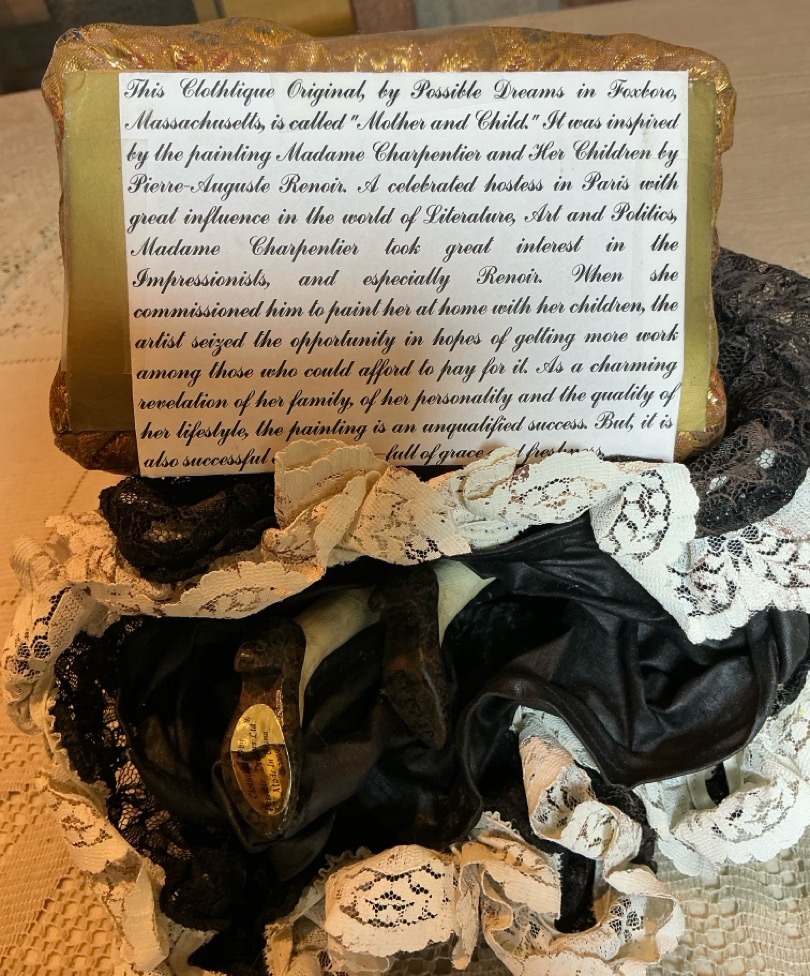 This Clothtique Original, by Possible Dreams in Foxboro,
Massachusetts, is called "Mother and Child." It was inspired
by the painting Madame Charpentier and Her Children by
Pierre-Auguste Renoir. A celebrated hostess in Paris with
great influence in the world of Literature, Art and Politics,
Madame Charpentier took great interest in the
Impressionists, and especially Renoir. When she
commissioned him to paint her at home with her children, the
artist seized the opportunity in hopes of getting more work
among those who could afford to pay for it. As a charming
revelation of her family, of her personality and the quality of
her lifestyle, the painting is an unqualified success. But, it is
also successful full of grace freshness
Made In